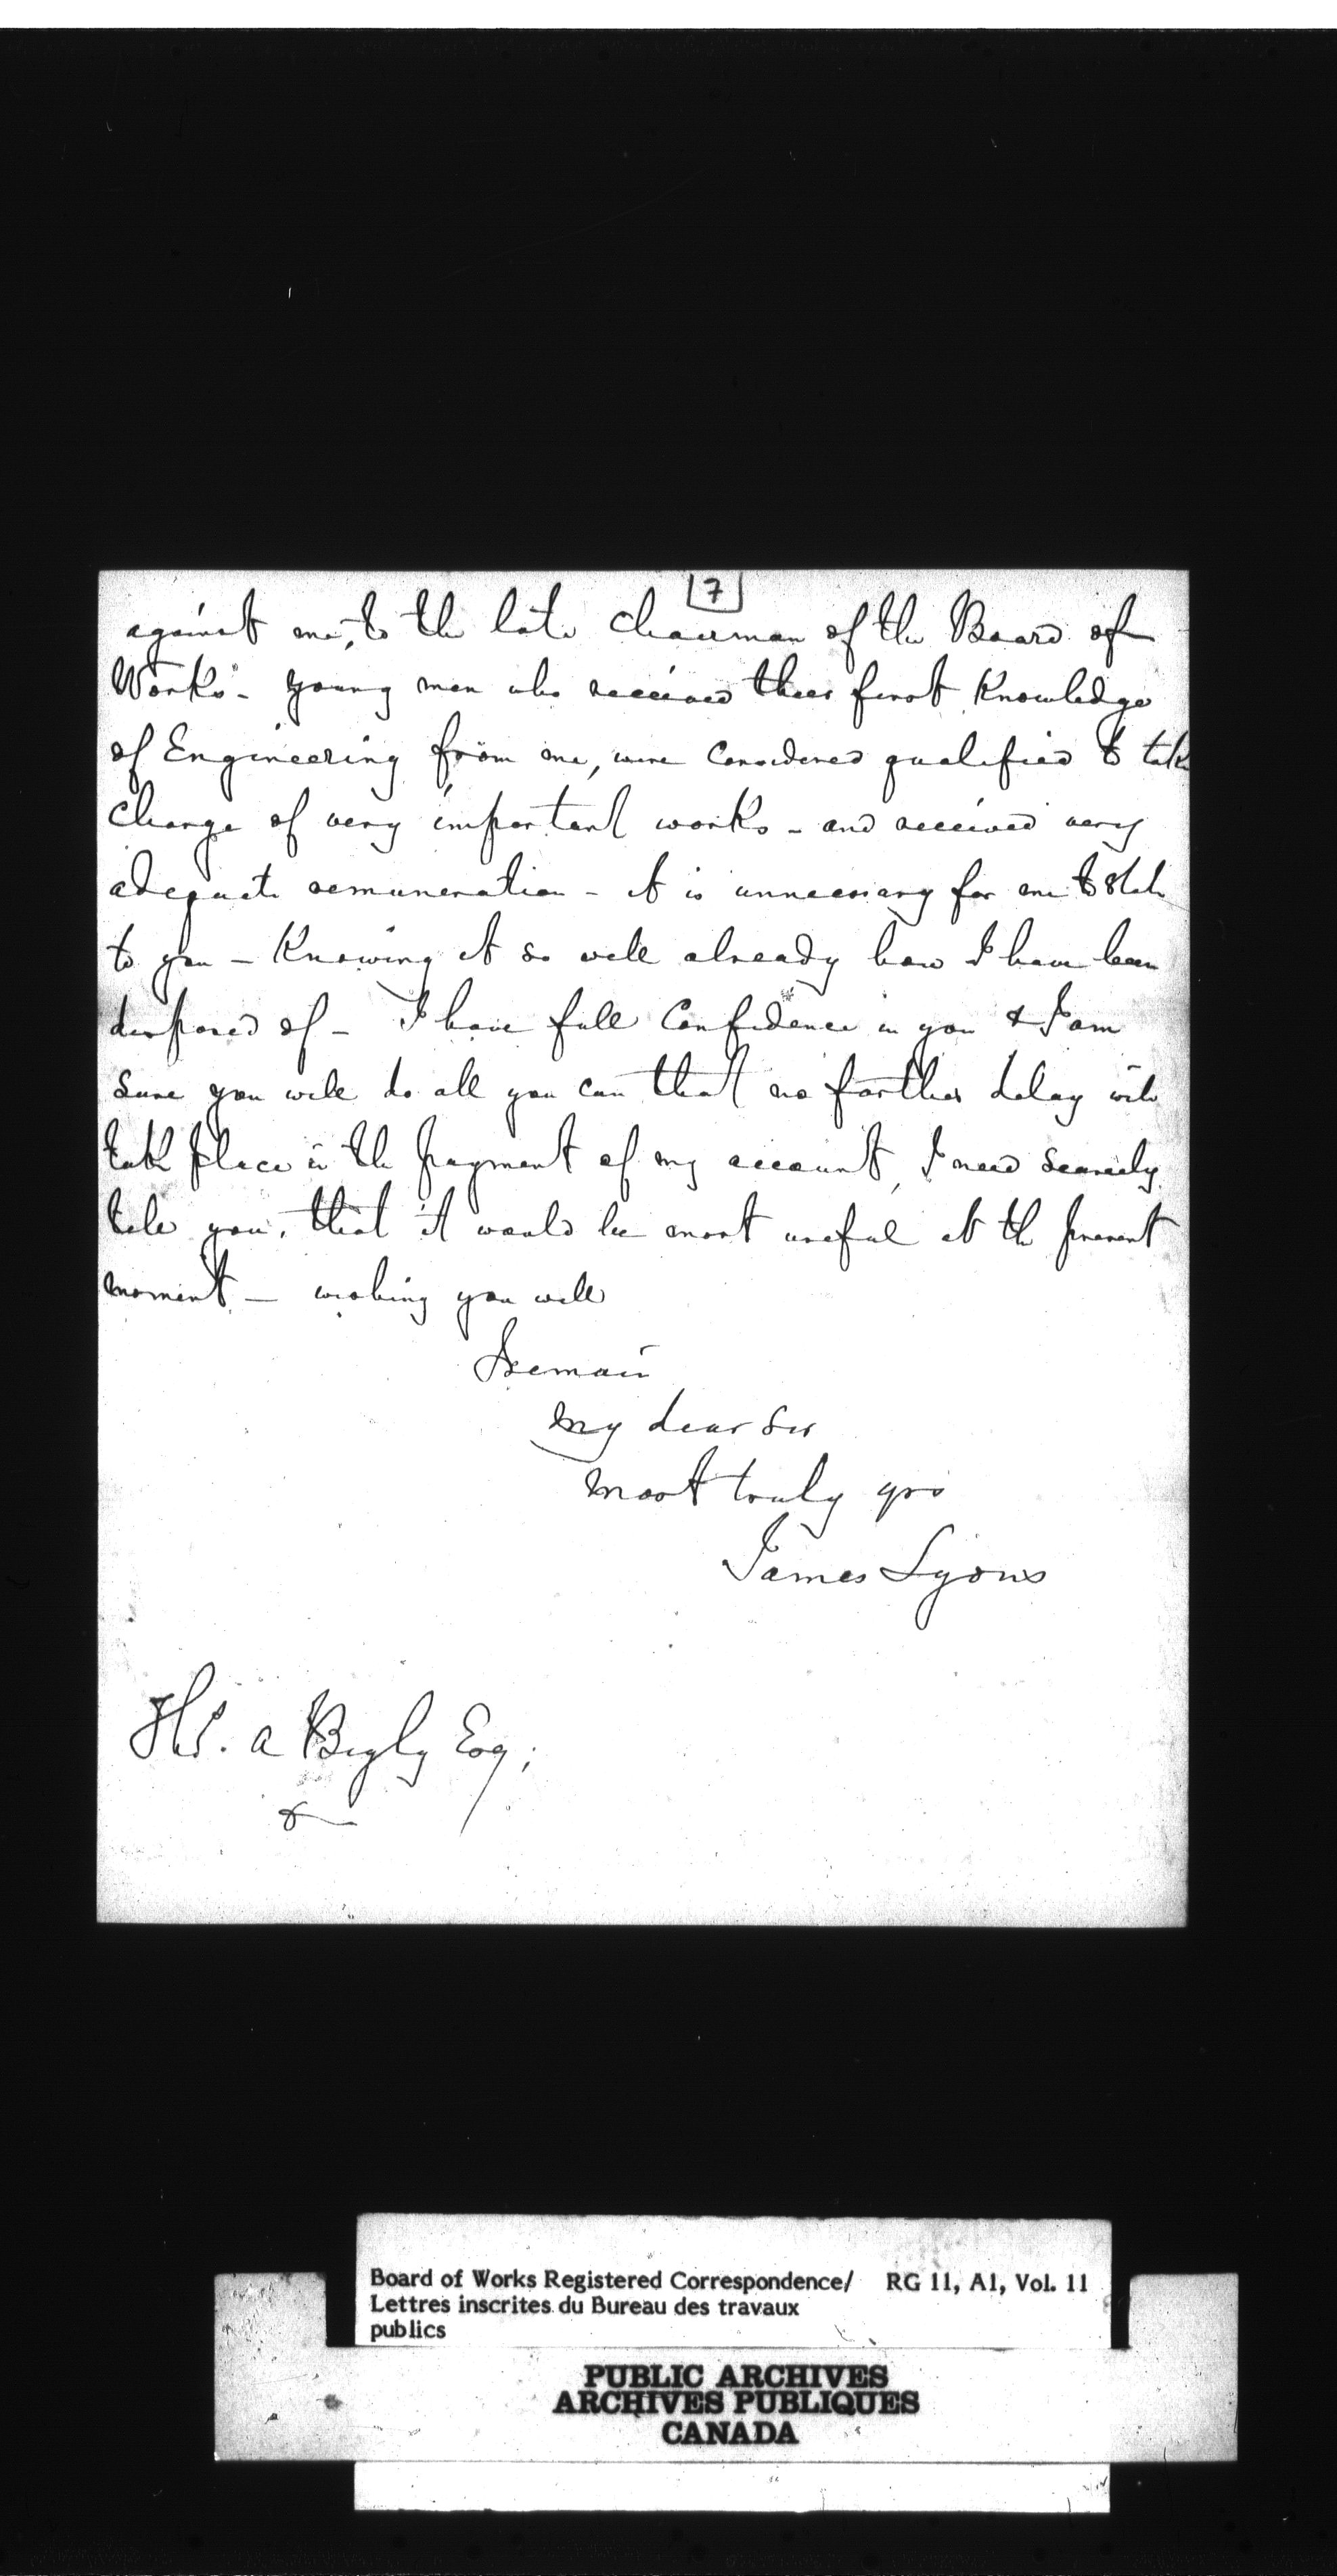 7
against me, to the late Chairman of the Board of
Works - young men who received their first Knowledge
of Engineering from me, were Considered qualified to take
charge of very important works - and received very
adequate remuneration - it is unnecessary for me to State
to you - Knowing it so well already how I have been
disposed of - I have full Confidence in you & I am
sure you will do all you can that no farther delay will
take place in the payment of my account, I need scarcely
tell you, that it would be most useful at the present
moment - wishing you well
I remain
my dear Sir
most truly yrs
James Lyons
Thos. A Begly Esq;
Board of Works Registered Correspondence/ RG 11, A1, Vol. 11
Lettres inscrites du Bureau des travaux
publics
PUBLIC ARCHIVES
ARCHIVES PUBLIQUES
CANADA